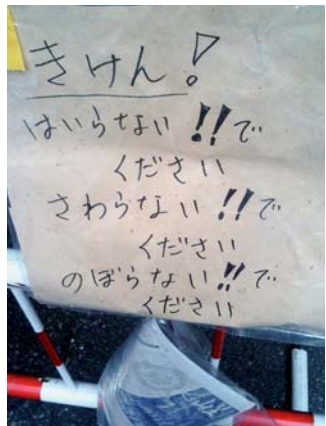 きけん!
はいらない!!で
ください
さわらない!!で
ください
のぼらない!!で
ください